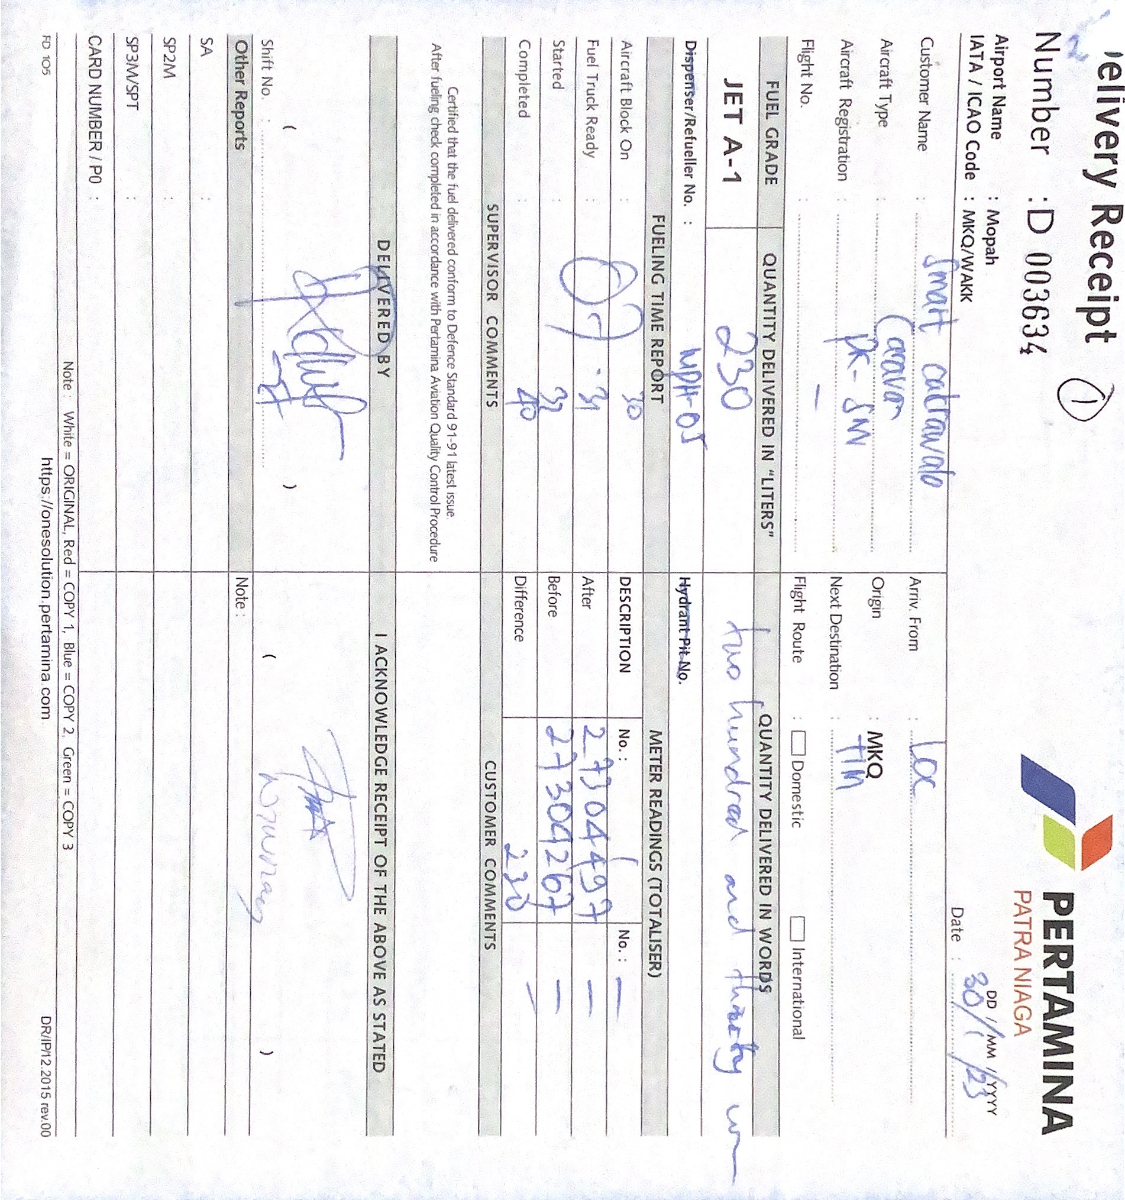 Delivery Receipt 1
PERTAMINA
PATRA NIAGA
Number : D 003634
DD / MM / YYYY
Date : 30/1/23
Airport Name : Mopah
IATA / ICAO Code : MKQ/WAKK
Customer Name : Smart catrawala
Arriv. From : Loc
Aircraft Type : Caravan
Origin : MKQ
Aircraft Registration : PK-SNN
Next Destination : TIM
Flight No. : —
Flight Route : Domestic International
FUEL GRADE QUANTITY DELIVERED IN "LITERS" QUANTITY DELIVERED IN WORDS
JET A-1 230 two hundred and thirty
Dispenser/Refueller No. : MPH-05 Hydrant Pit No.
FUELING TIME REPORT METER READINGS (TOTALISER)
Aircraft Block On : 30 DESCRIPTION No. : 1 No. : —
Fuel Truck Ready : 07 . 31 After 27304497 —
Started : 32 Before 27304267 —
Completed : 40 Difference 230 —
SUPERVISOR COMMENTS CUSTOMER COMMENTS
Certified that the fuel delivered conform to Defence Standard 91-91 latest issue
After fueling check completed in accordance with Pertamina Aviation Quality Control Procedure
DELIVERED BY I ACKNOWLEDGE RECEIPT OF THE ABOVE AS STATED
Shift No. : ( ) ( )
Other Reports Note :
SA :
SP2M :
SP3M/SPT :
CARD NUMBER / PO :
Note : White = ORIGINAL, Red = COPY 1, Blue = COPY 2, Green = COPY 3
FD 105 https://onesolution.pertamina.com DR/IP/12.2015 rev.00